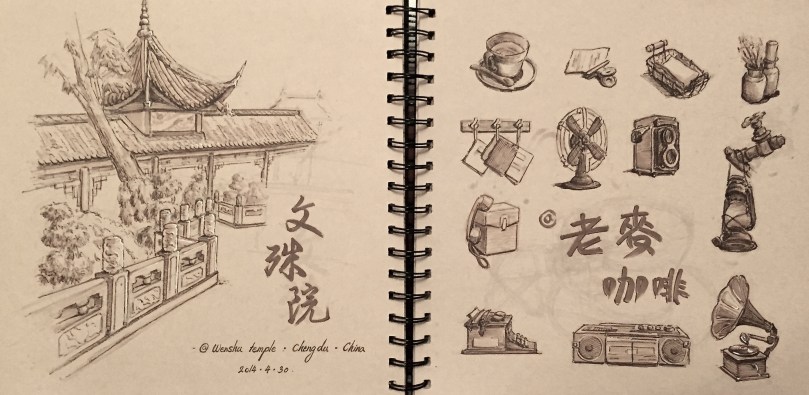 文
殊
院
@ Wenshu temple · Chengdu · China
2014 · 4 · 30
@
老麥
咖啡